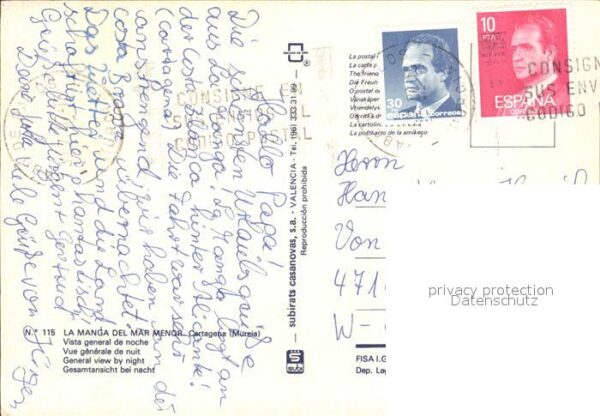 Hallo Papa!
Die schönsten Urlaubsgrüße
aus La Manga! La Manga liegt an
der Costa Blanca hinter Alicante!
(Cartagena) Die Fahrt war sehr
anstrengend, wir haben an der
Costa Brava übernachtet.
Das Wetter und die Landschaft
ist hier phantastisch
Viele Grüße von Jürgen
N.° 115 LA MANGA DEL MAR MENOR. Cartagena (Murcia)
Vista general de noche
Vue générale de nuit
General view by night
Gesamtansicht bei nacht
subirats casanovas, s.a. - VALENCIA - Tel. (96) 333 31 99
Reproducción prohibida
La postal
La carte p
The friend
Die Freun
O postal o
Vänskape
Vriendely
La cartolin
La postkarto de la amikeco
30
España correos
10
PTA
ESPAÑA
CORREOS
CONSIGNE
SUS ENV
CODIGO
CONSIGNE
Herrn
Han
Von
4710
W-
FISA I.G
Dep. Leg
privacy protection
Datenschutz